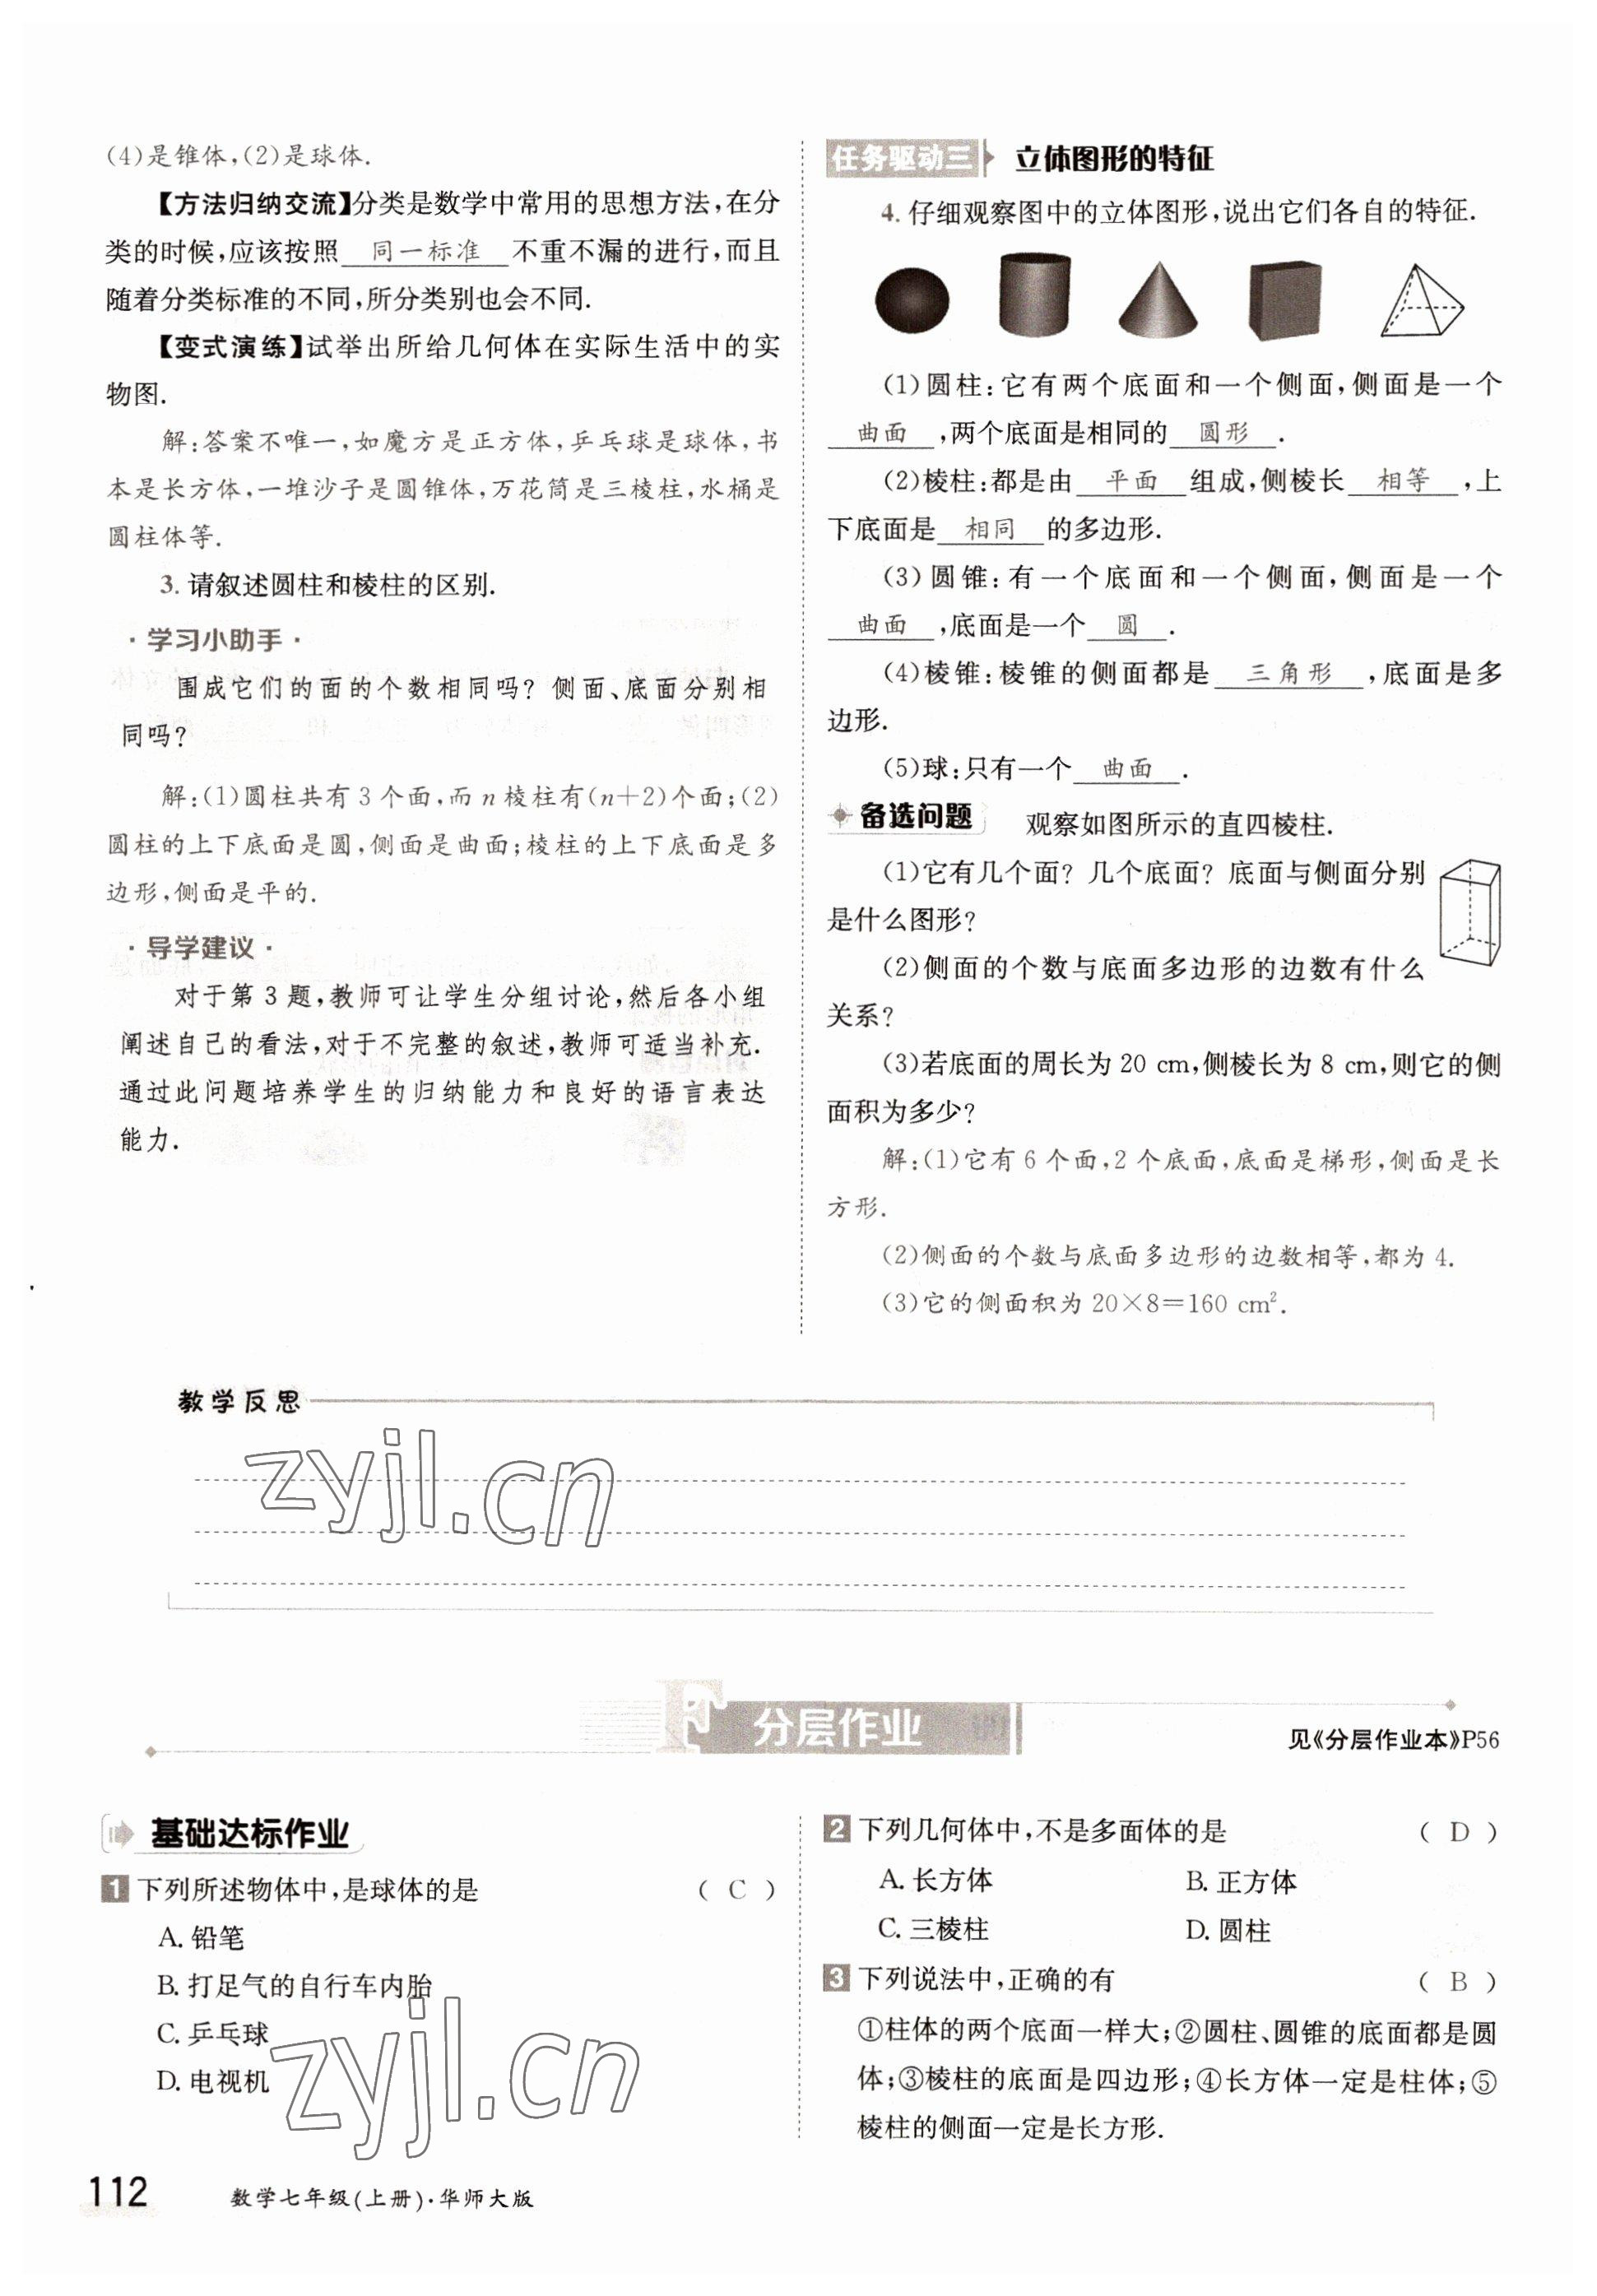 (4)是锥体,(2)是球体.
【方法归纳交流】分类是数学中常用的思想方法,在分
类的时候,应该按照 同一标准 不重不漏的进行,而且
随着分类标准的不同,所分类别也会不同.
【变式演练】试举出所给几何体在实际生活中的实
物图.
解:答案不唯一,如魔方是正方体,乒乓球是球体,书
本是长方体,一堆沙子是圆锥体,万花筒是三棱柱,水桶是
圆柱体等.
3. 请叙述圆柱和棱柱的区别.
·学习小助手·
围成它们的面的个数相同吗? 侧面、底面分别相
同吗?
解:(1)圆柱共有 3 个面,而 n 棱柱有(n+2)个面;(2)
圆柱的上下底面是圆,侧面是曲面;棱柱的上下底面是多
边形,侧面是平的.
·导学建议·
对于第 3 题,教师可让学生分组讨论,然后各小组
阐述自己的看法,对于不完整的叙述,教师可适当补充.
通过此问题培养学生的归纳能力和良好的语言表达
能力.
任务驱动三 立体图形的特征
4. 仔细观察图中的立体图形,说出它们各自的特征.
(1)圆柱:它有两个底面和一个侧面,侧面是一个
曲面 ,两个底面是相同的 圆形 .
(2)棱柱:都是由 平面 组成,侧棱长 相等 ,上
下底面是 相同 的多边形.
(3)圆锥:有一个底面和一个侧面,侧面是一个
曲面 ,底面是一个 圆 .
(4)棱锥:棱锥的侧面都是 三角形 ,底面是多
边形.
(5)球:只有一个 曲面 .
备选问题 观察如图所示的直四棱柱.
(1)它有几个面? 几个底面? 底面与侧面分别
是什么图形?
(2)侧面的个数与底面多边形的边数有什么
关系?
(3)若底面的周长为 20 cm,侧棱长为 8 cm,则它的侧
面积为多少?
解:(1)它有 6 个面,2 个底面,底面是梯形,侧面是长
方形.
(2)侧面的个数与底面多边形的边数相等,都为 4.
(3)它的侧面积为 20×8=160 cm².
教学反思
zyjl.cn
F 分层作业
见《分层作业本》P56
基础达标作业
1 下列所述物体中,是球体的是 ( C )
A. 铅笔
B. 打足气的自行车内胎
C. 乒乓球
D. 电视机
zyjl.cn
2 下列几何体中,不是多面体的是 ( D )
A. 长方体 B. 正方体
C. 三棱柱 D. 圆柱
3 下列说法中,正确的有 ( B )
①柱体的两个底面一样大;②圆柱、圆锥的底面都是圆
体;③棱柱的底面是四边形;④长方体一定是柱体;⑤
棱柱的侧面一定是长方形.
112 数学七年级(上册)·华师大版